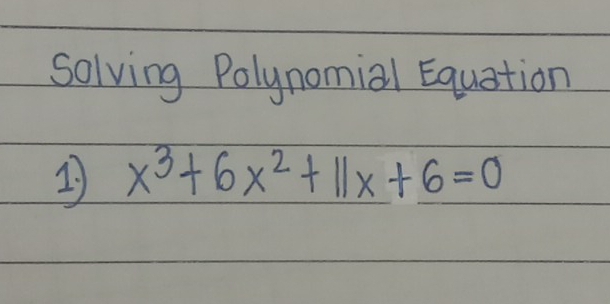 Solving Polynomial Equation
1) x³+6x²+11x+6=0